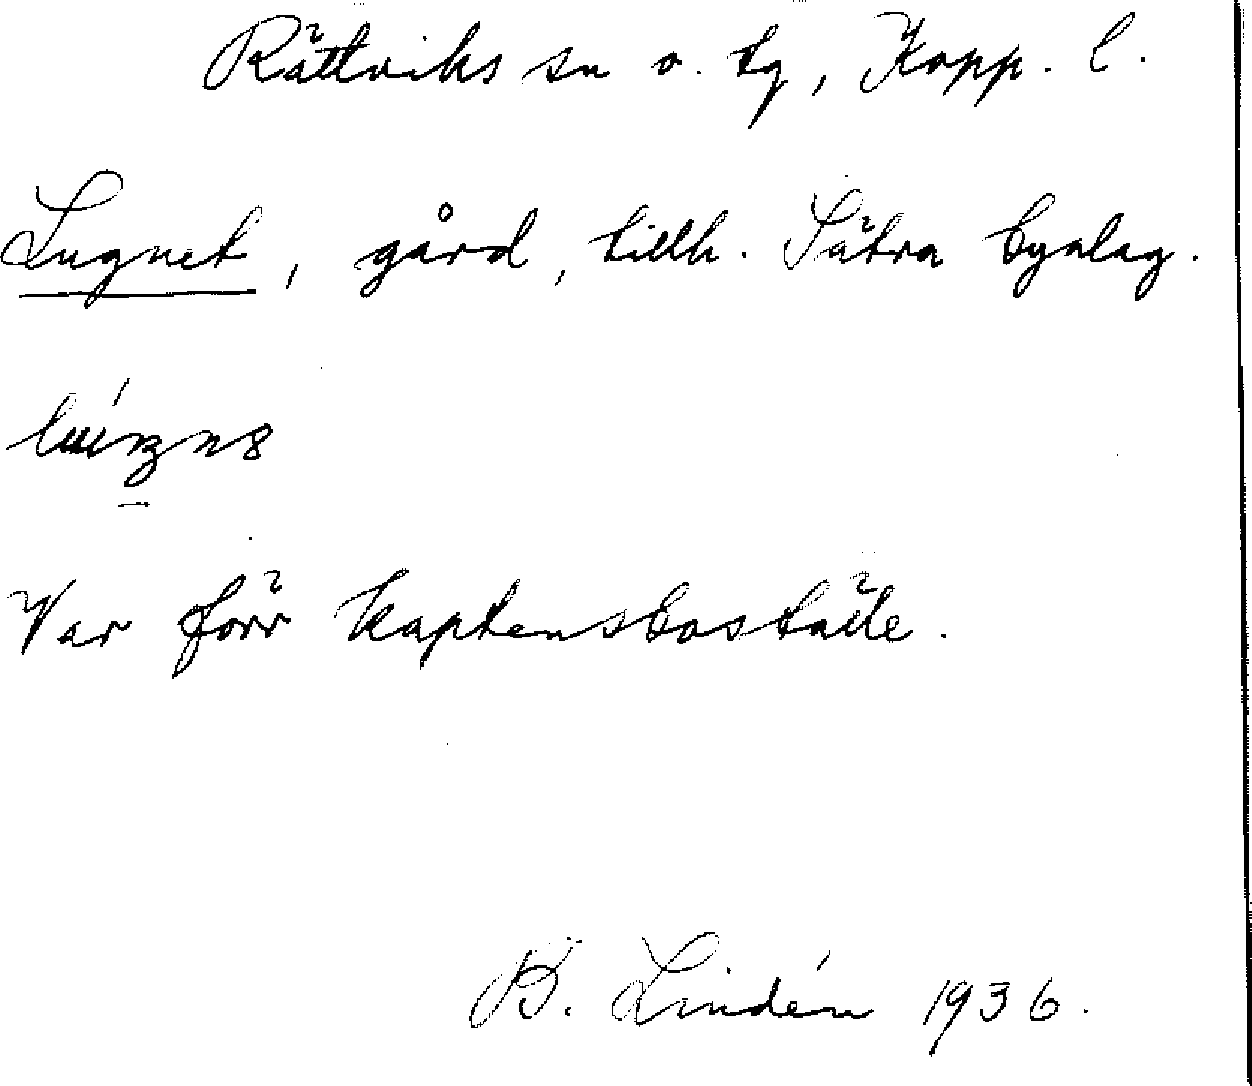 Rättviks sn o. tg, Kopp. l.
Lugnet, gård, tillh. Sätra bynlag.
Var förr kaptensboställe.
B. Lindén 1936.